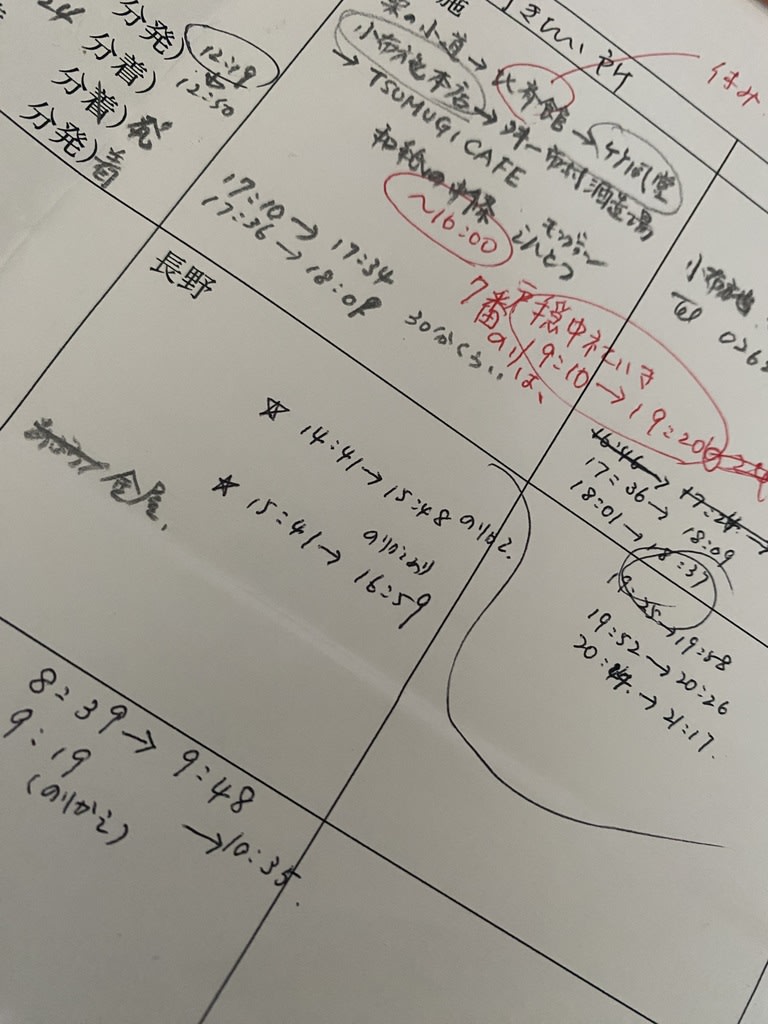 24
分発)
分着)
分着) 発
分発) 着
12:19
12:50
施
行きたい所
栗の小道→北斎館→竹風堂
休み
小布施本店→
市村酒造場
→TSUMUGI CAFE
和紙の中條
~16:00
モンブラン
17:10→17:34
17:36→18:09
30分くらい
7番のりば、
戸隠中社いき
19:10→19:20
小布施
Tel 026
16:46→17:21→
17:36→18:09
18:01→18:37
19:25→19:58
19:52→20:26
20:44→21:17.
長野
☆ 14:41→15:48 のりかえ
☆ 15:41→16:59
のりかえあり
8:39→9:48
9:19
→10:35.
(のりかえ)